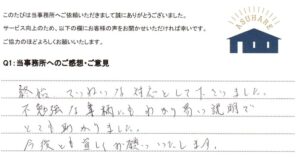 このたびは当事務所へご依頼いただきまして誠にありがとうございました。
サービス向上のため、以下の欄にお客様の声をお聞かせいただければ幸いです。
ご協力のほどよろしくお願いいたします。
ASUHARE
Q1：当事務所へのご感想・ご意見
終始 ていねいな対応をして下さいました。
不勉強な事柄にもわかり易い説明で
とても助かりました。
今後とも宜しくお願いいたします。